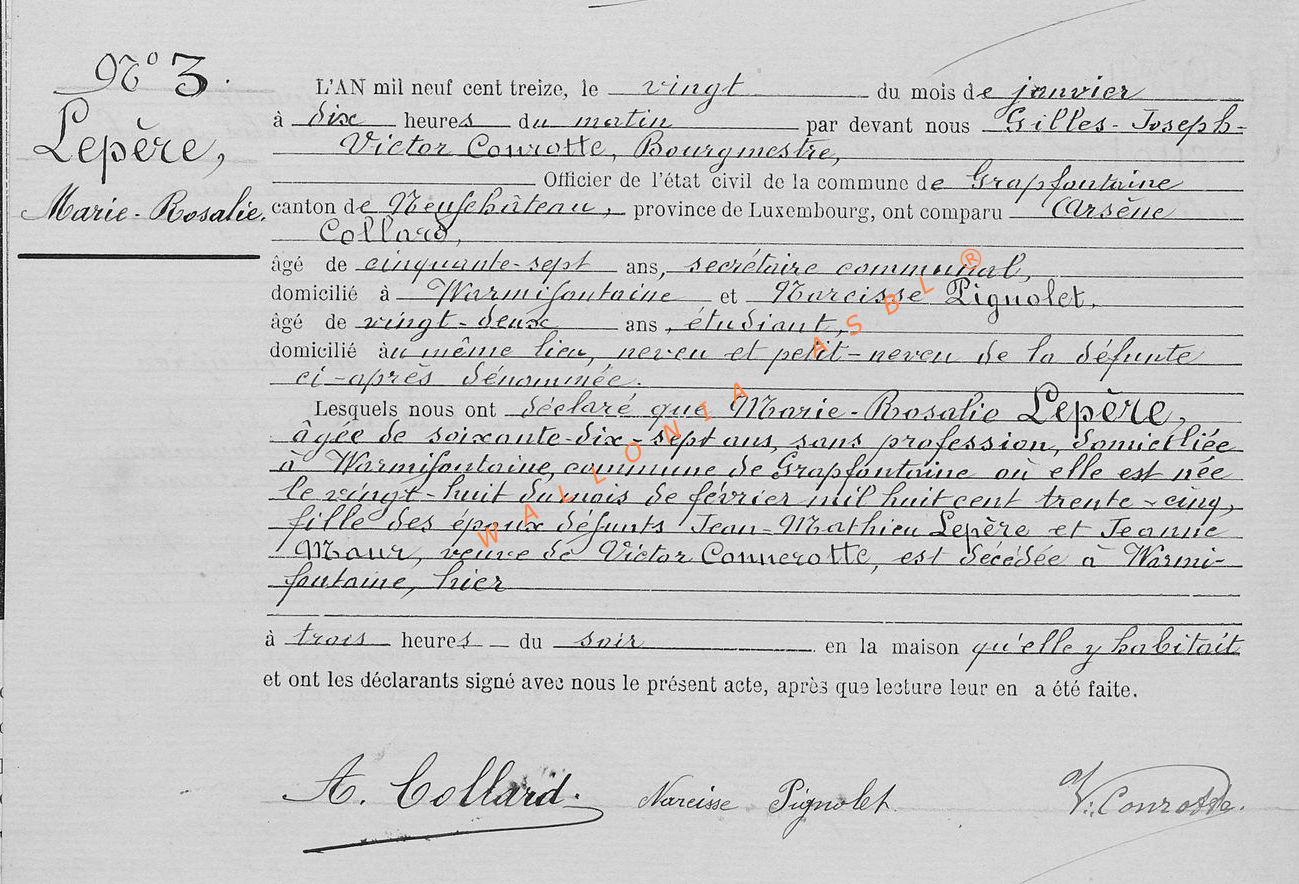 N° 3.
Lepère,
Marie-Rosalie.
L'AN mil neuf cent treize, le vingt du mois de janvier
à dix heures du matin par devant nous Gilles-Joseph-
Victor Conrotte, Bourgmestre,
Officier de l'état civil de la commune de Grapfontaine
canton de Neufchâteau, province de Luxembourg, ont comparu Arsène
Collard,
âgé de cinquante-sept ans, secrétaire communal,
domicilié à Warmifontaine et Narcisse Pignolet,
âgé de vingt-deux ans, étudiant,
domicilié au même lieu, neveu et petit-neveu de la défunte
ci-après dénommée.
Lesquels nous ont déclaré que Marie-Rosalie Lepère,
âgée de soixante-dix-sept ans, sans profession, domiciliée
à Warmifontaine, commune de Grapfontaine où elle est née
le vingt-huit du mois de février mil huit cent trente-cinq,
fille des époux défunts Jean-Mathieu Lepère et Jeanne
Maur, veuve de Victor Connerotte, est décédée à Warmi-
fontaine, hier
à trois heures du soir en la maison qu'elle y habitait
et ont les déclarants signé avec nous le présent acte, après que lecture leur en a été faite.
A. Collard. Narcisse Pignolet. V. Conrotte.
WALLONIA ASBL ®